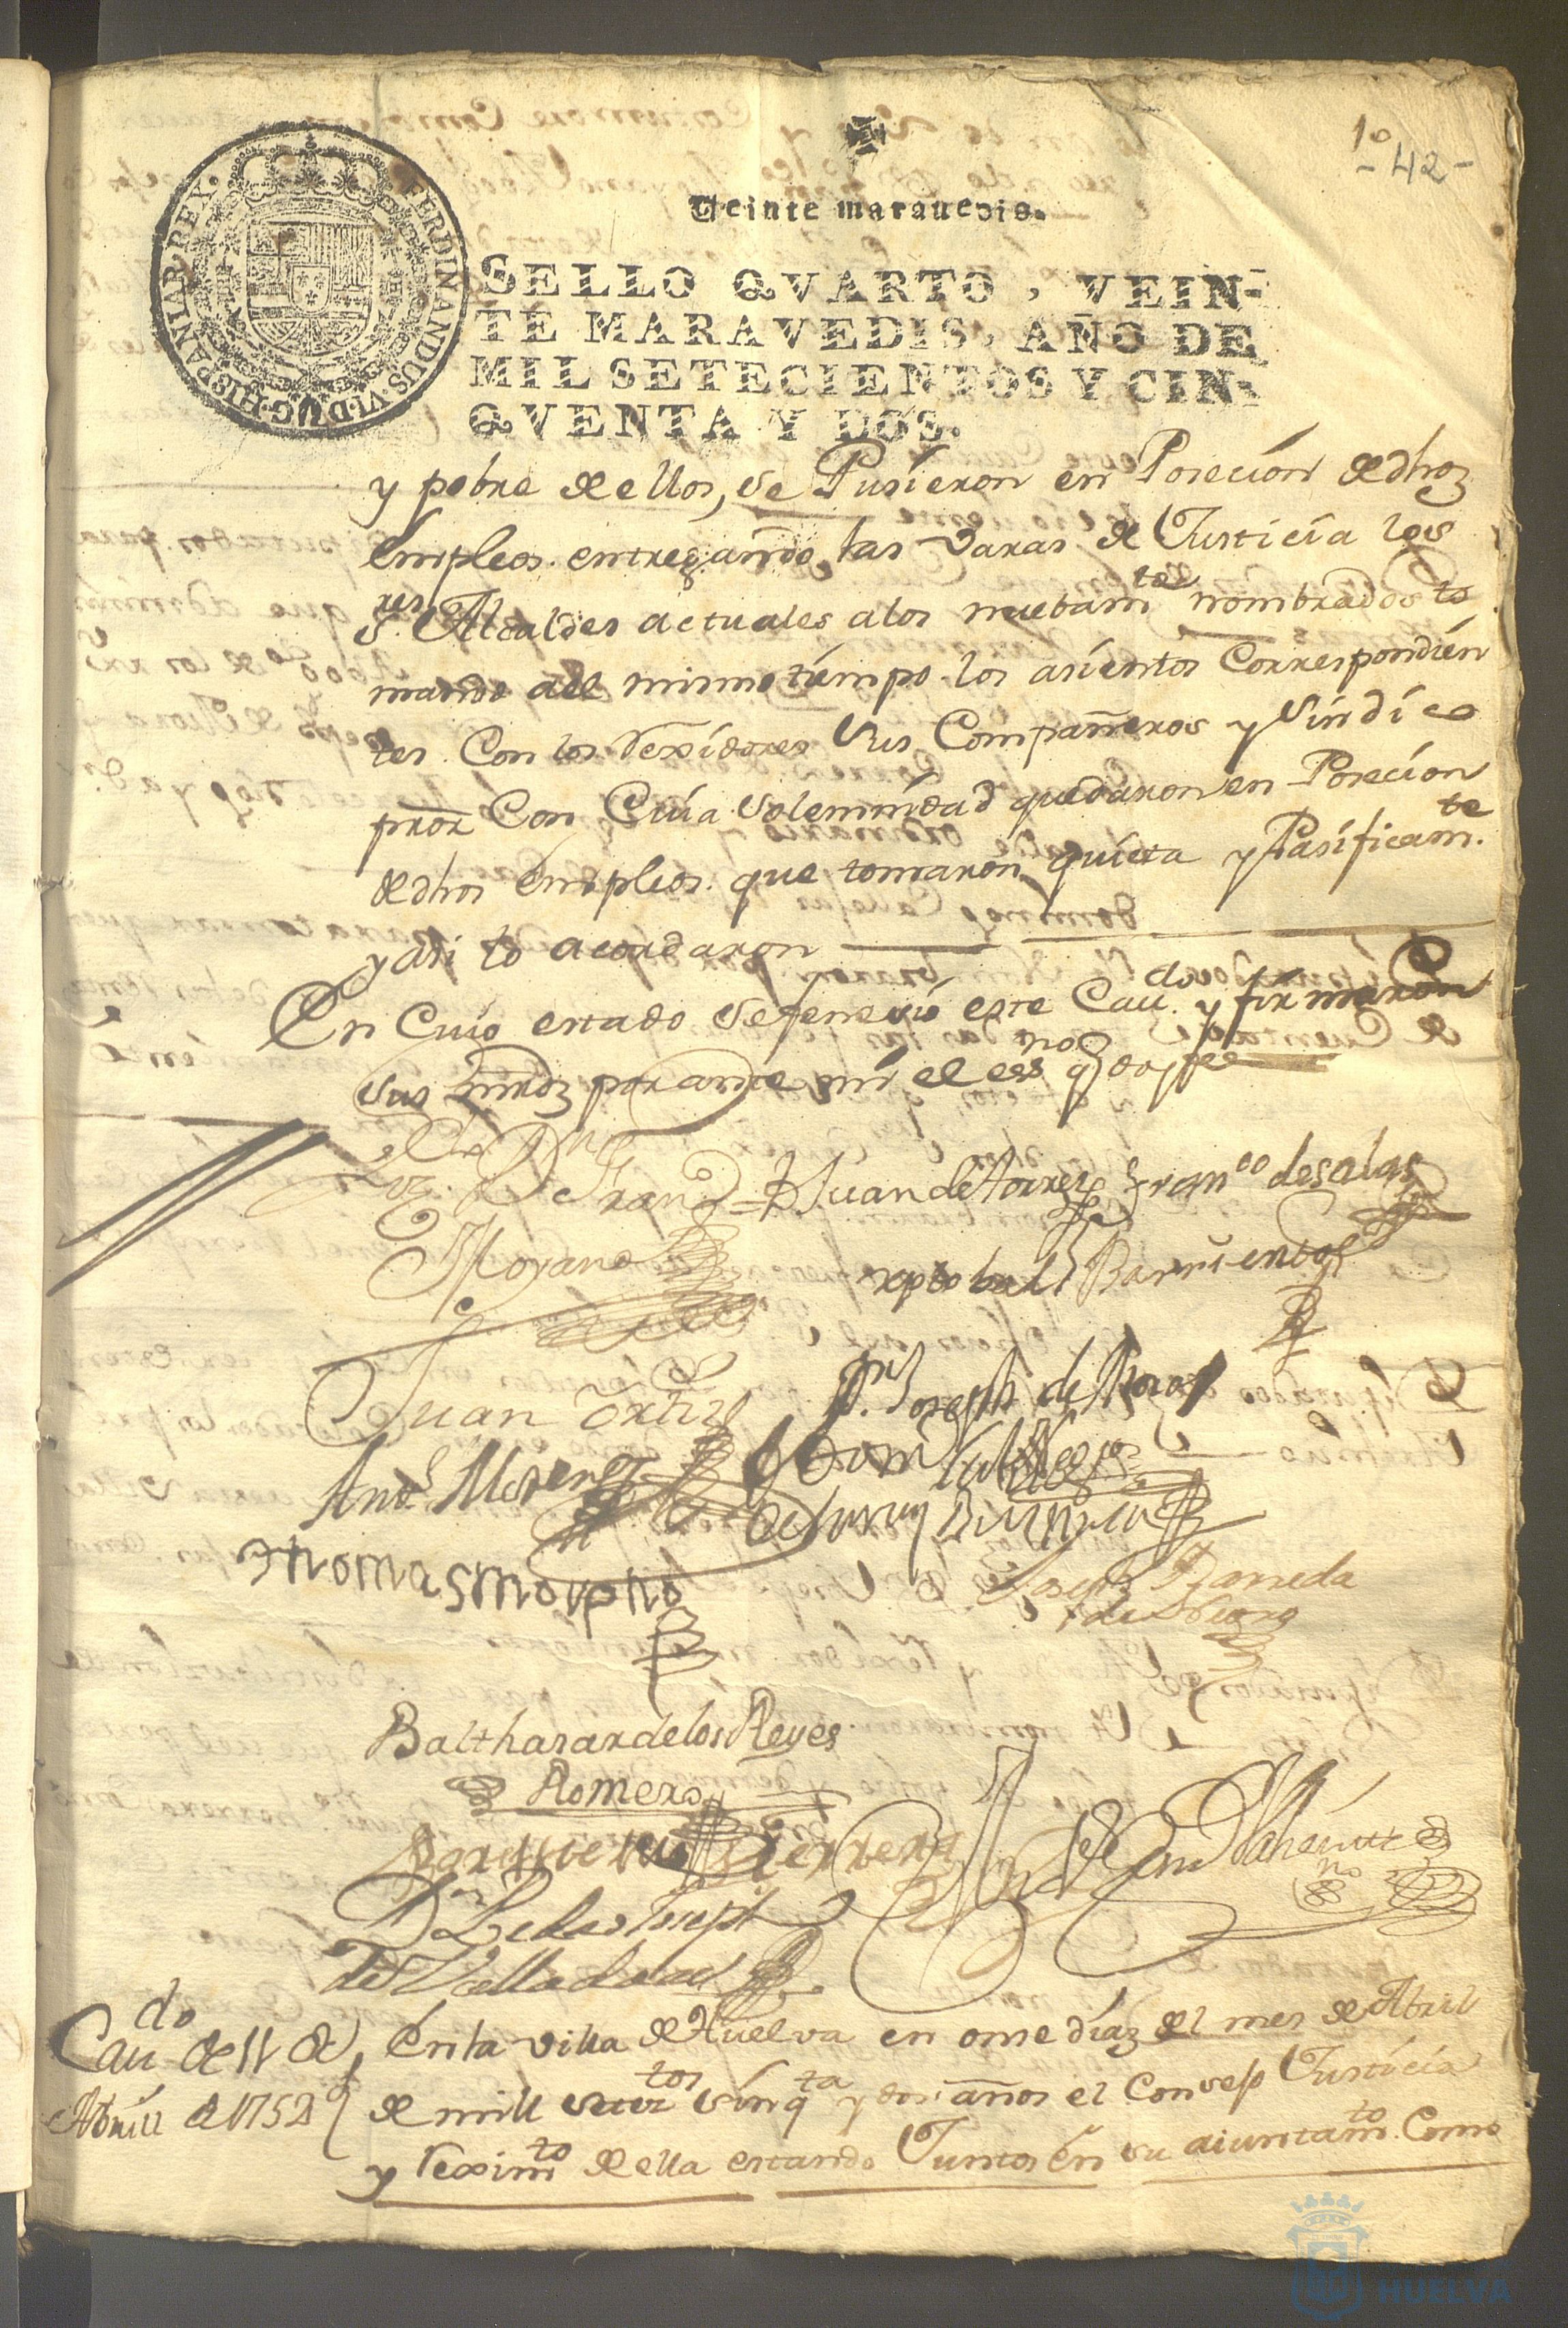 1º
- 42 -
Veinte maravedis.
HISPANIAR. REX. FERDINANDUS. VI. D. G.
SELLO QVARTO, VEIN-
TE MARAVEDIS, AÑO DE
MIL SETECIENTOS Y CIN-
QVENTA Y DOS.
y pobre de ellos, se Pusieron en Posecion de dhos
empleos entregando las varas de Justicia los
s.res Alcaldes actuales a los nuebam.te nombrados to
mando al mismo tiempo los asientos Correspondien
tes Con los Rexidores sus Compañeros y Sindico
pror Con Cuia solemnidad quedaron en Posecion
de dhos empleos que tomaron quieta y Pasificam.te
y asi lo acordaron
En Cuio estado se fenesio este Cau.do y firmaron
sus mrds por ante mi el ess.no q doy fee
Fran.co Juan de torres Fran.co de salas
Moyano xptobal Barrientos
Juan Ortiz D.n Joseph de Roxas
And.s Moreno
thomas moreno
Joseph Raneda
Balthasar de los Reyes
Romero
Herrera
D.n Joseph
de Valladares
Cau.do de 11 de
Abrill de 1752
En la villa de Huelva en onse dias del mes de Abril
de mill setez.tos sinq.ta y dos años el Consejo Justicia
y Rexim.to de ella estando Juntos en su aiuntam.to Como
HUELVA